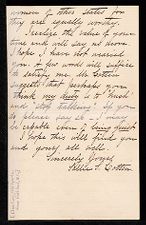 women of other states for
they are equally worthy.
I realize the value of your
time and will say no more.
I hope I have not wearied
you. A few words will suffice
to satisfy me. Mr Cotton
suggests that perhaps you
think my duty is to "hush"
and stop talking. If you
do please say so - I may
be capable even of being quiet.
I hope this will find you
and yours all well.
Sincerely Yours
Sallie S. Cotten